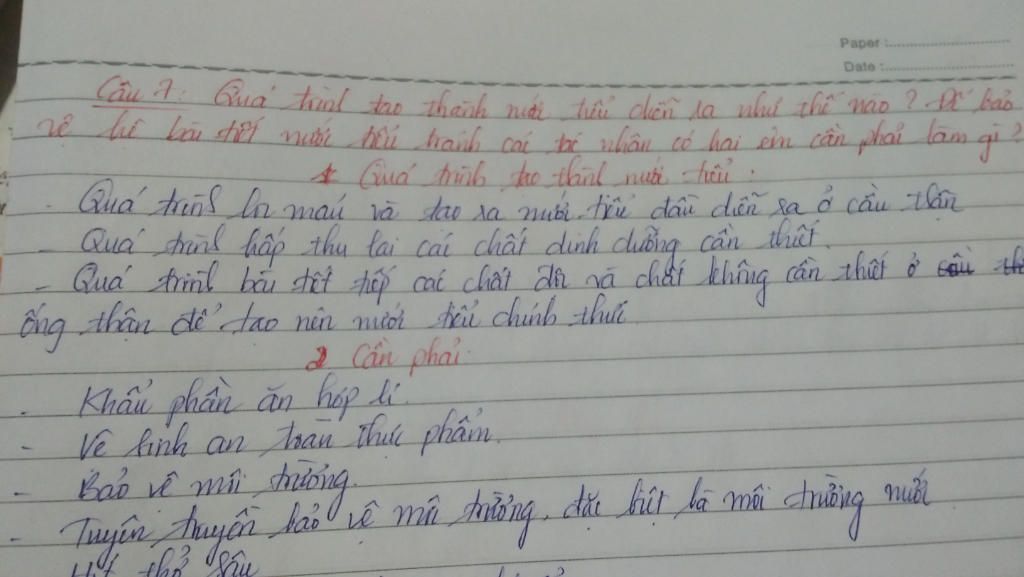 Paper :
Date :
Câu 7: Quá trình tạo thành nước tiểu diễn ra như thế nào? Để bảo
vệ hệ bài tiết nước tiểu tránh các tác nhân có hại em cần phải làm gì?
1 Quá trình tạo thành nước tiểu.
- Quá trình lọc máu và tạo ra nước tiểu đầu diễn ra ở cầu thận
- Quá trình hấp thụ lại các chất dinh dưỡng cần thiết.
- Quá trình bài tiết tiếp các chất độc và chất không cần thiết ở
ống thận để tạo nên nước tiểu chính thức
2 Cần phải.
- Khẩu phần ăn hợp lí.
- Vệ sinh an toàn thực phẩm.
- Bảo vệ môi trường.
- Tuyên truyền bảo vệ môi trường, đặc biệt là môi trường nước
Hít thở sâu